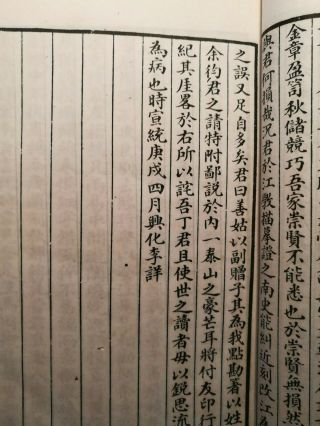 金章盈笥秋儲競巧吾家崇賢不能悉也於崇賢無損然
與君何損哉況君於江斅描摹證之南史能糾近刻改江
之誤又足自多矣君曰善姑以副贈子其為我點勘著以姓
余徇君之請特附鄙說於內一泰山之豪芒耳將付友印行
紀其厓畧於右所以詫吾丁君且使世之讀者毋以銳思流
為病也時宣統庚戌四月興化李詳